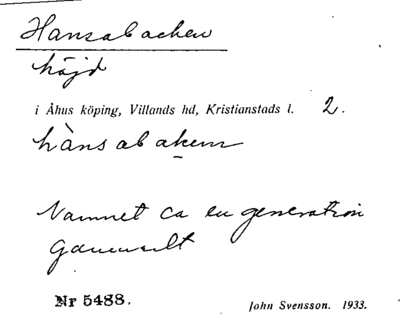 Hansabacken
höjd
i Åhus köping, Villands hd, Kristianstads l. 2.
hànsabaken
Namnet ca en generation
gammalt
Nr 5488.
John Svensson. 1933.